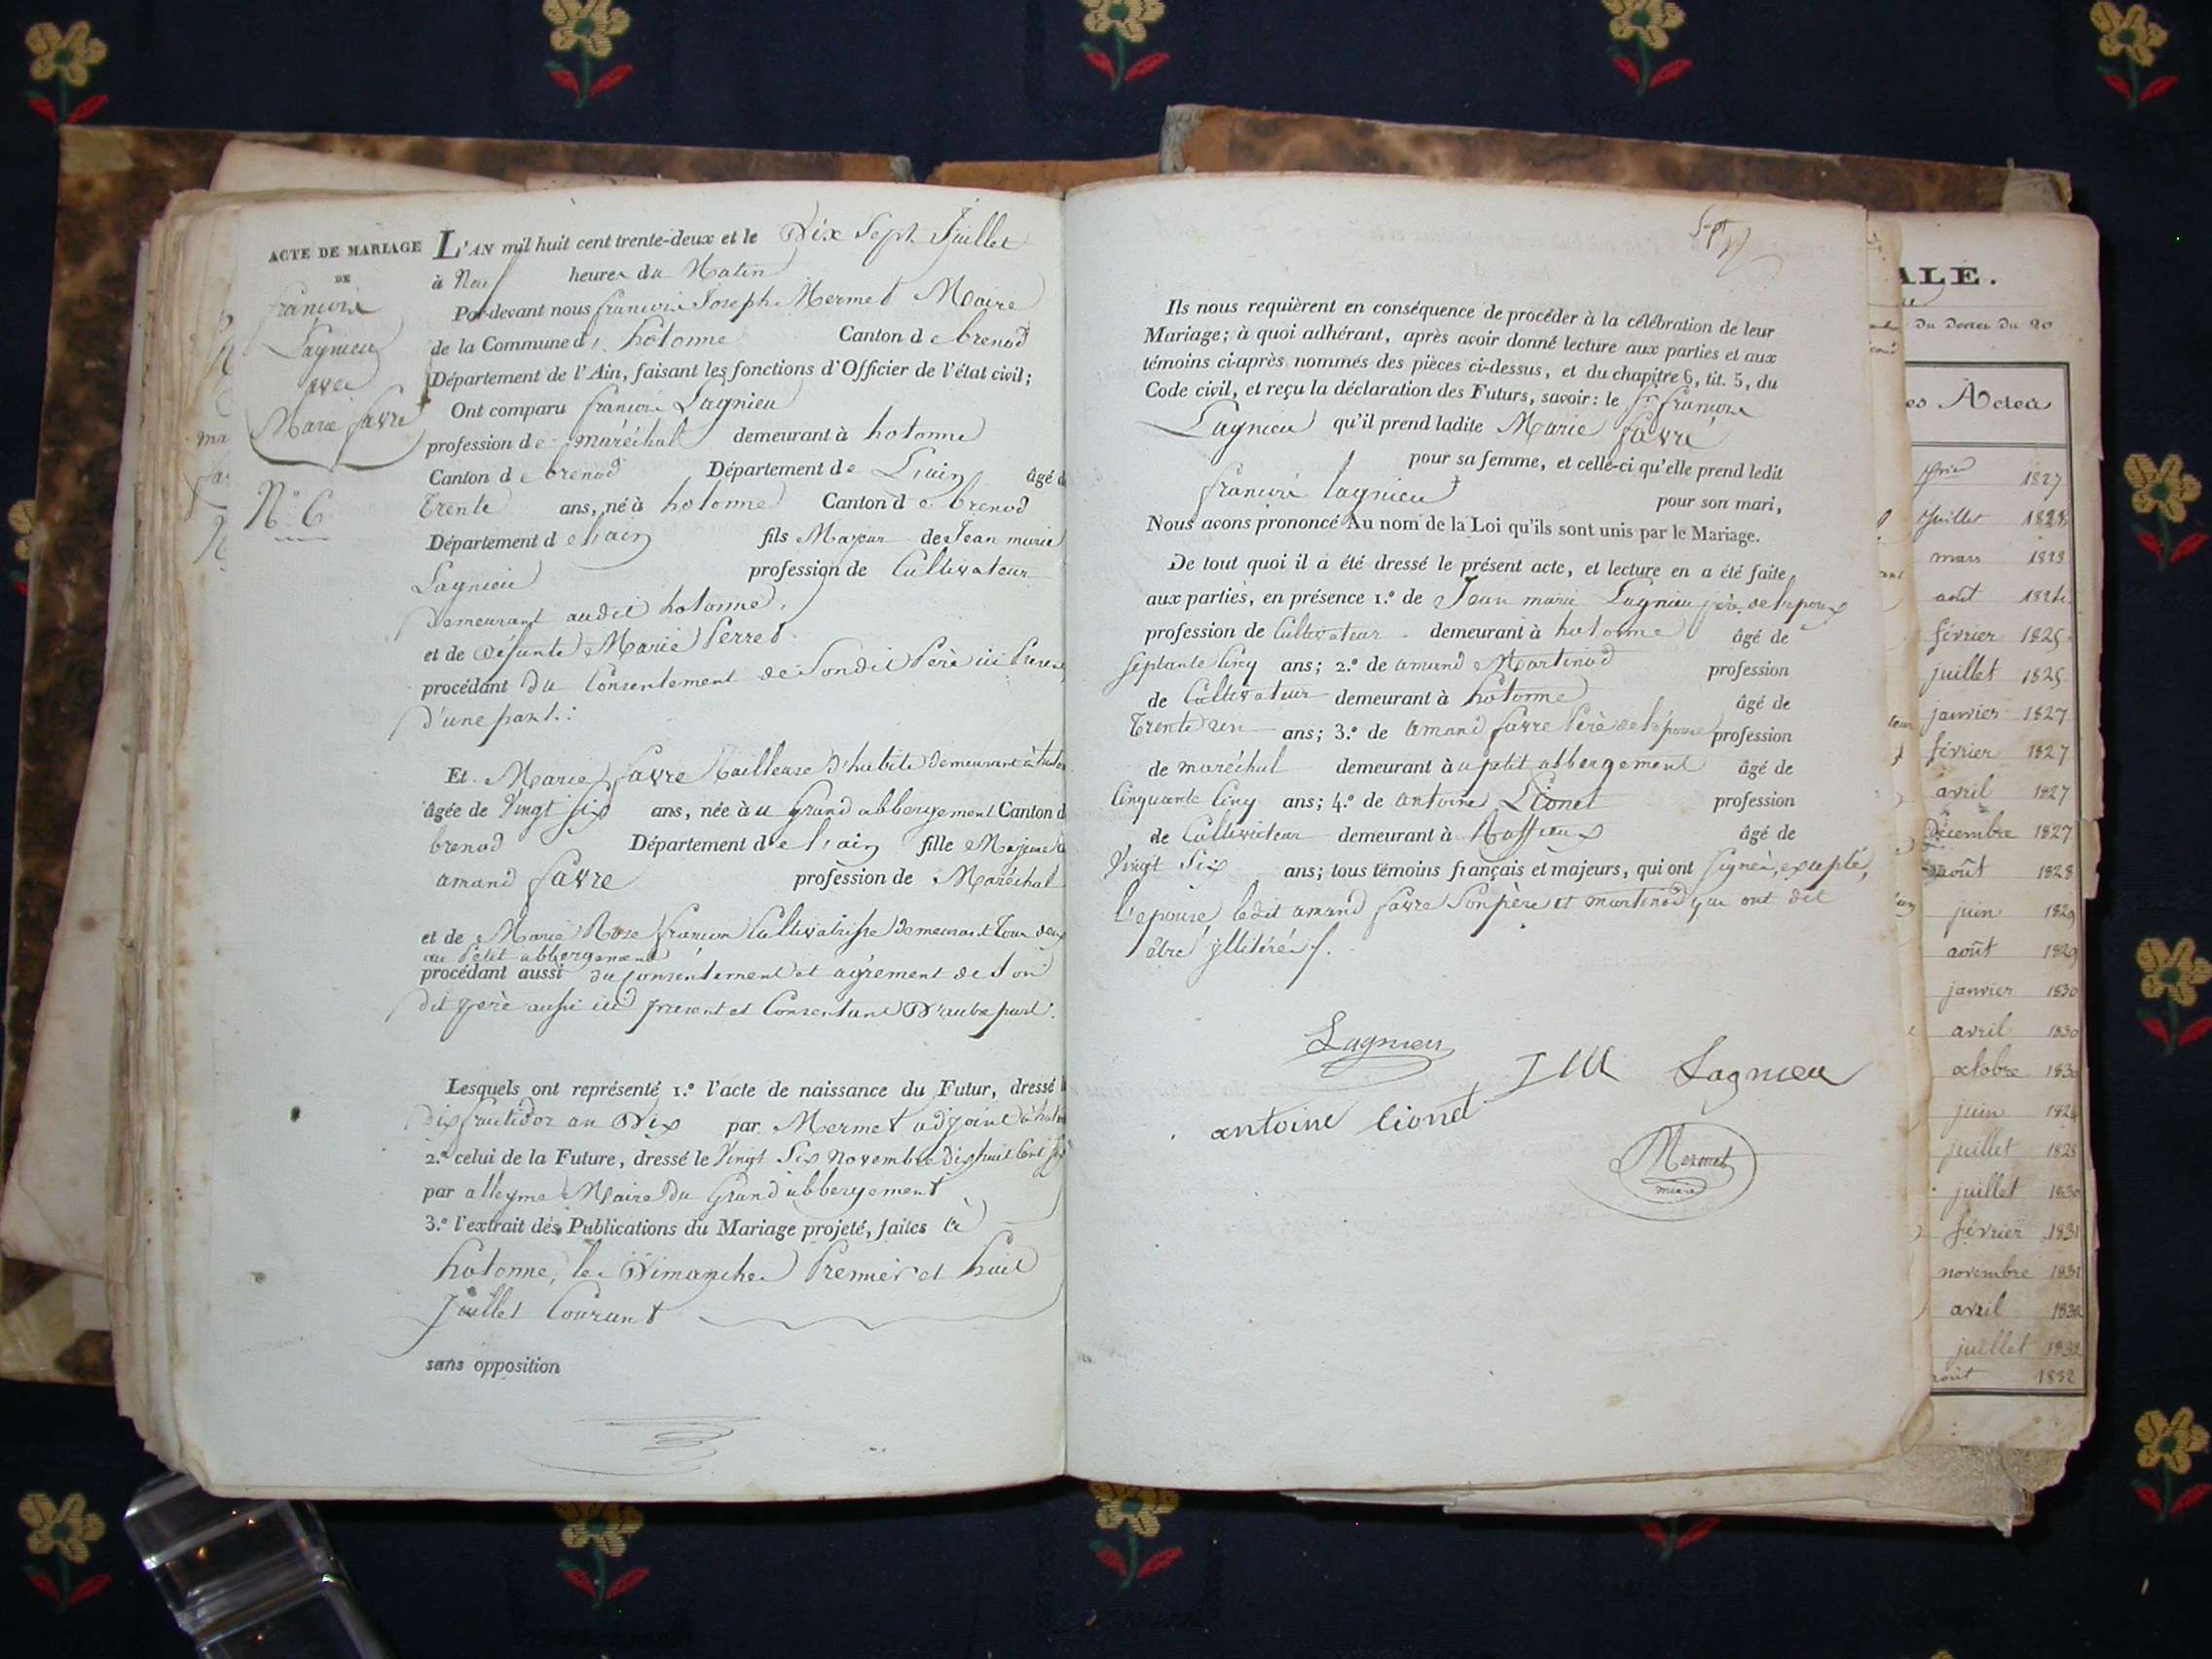 ACTE DE MARIAGE
DE
françois
Lagnieu
avec
Marie favre
N° 6
L'AN mil huit cent trente-deux et le Dix Sept Juillet
à Neuf heures du Matin
Par-devant nous françois Joseph Mermet Maire
de la Commune d' hotonne Canton de brenod
Département de l'Ain, faisant les fonctions d'Officier de l'état civil;
Ont comparu françois Lagnieu
profession de maréchal demeurant à hotonne
Canton de brenod Département de L'ain âgé d
trente ans, né à hotonne Canton de brenod
Département de l'ain fils Majeur de Jean marie
Lagnieu profession de Cultivateur
Demeurant audit hotonne,
et de Défunte Marie Perret
procédant du Consentement de Sondit Père ici Present
d'une part.:
Et Marie favre tailleuse d'habits demeurant à
âgée de Vingt six ans, née à u Grand abbergement Canton d
brenod Département de l'ain fille Majeure d
amand favre profession de Maréchal
et de Marie Rose françon Cultivatrisse demeurant tous deux
au Petit abbergement
procédant aussi du consentement et agrément de son
dit père aussi ici present et Consentant D'autre part.
Lesquels ont représenté 1.º l'acte de naissance du Futur, dressé l
Dix fructidor an Dix par Mermet adjoint à
2.º celui de la Future, dressé le Vingt Six Novembre Dix huit Cent
par alleyme Maire du Grand abbergement
3.º l'extrait des Publications du Mariage projeté, faites à
hotonne, les Dimanches Premier et huit
Juillet Courant
sans opposition
Sept
Ils nous requièrent en conséquence de procéder à la célébration de leur
Mariage; à quoi adhérant, après avoir donné lecture aux parties et aux
témoins ci-après nommés des pièces ci-dessus, et du chapitre 6, tit. 5, du
Code civil, et reçu la déclaration des Futurs, savoir: le Sr françois
Lagnieu qu'il prend ladite Marie favre
pour sa femme, et celle-ci qu'elle prend ledit
françois lagnieu pour son mari,
Nous avons prononcé Au nom de la Loi qu'ils sont unis par le Mariage.
De tout quoi il a été dressé le présent acte, et lecture en a été faite
aux parties, en présence 1.º de Jean marie Lagnieu père de l'epoux
profession de Cultivateur demeurant à hotonne âgé de
Septante Cinq ans; 2.º de amand Martinod profession
de Cultivateur demeurant à hotonne âgé de
Trente un ans; 3.º de amand favre Père de l'épouse profession
de maréchal demeurant à u petit abbergement âgé de
Cinquante Cinq ans; 4.º de antoine Lionet profession
de Cultivateur demeurant à Ruffieux âgé de
Vingt Six ans; tous témoins français et majeurs, qui ont signés, excepté,
l'epouse, ledit amand favre Sonpère et martinod qui ont dit
être yllitérés.
Lagnieu
JM Lagnieu
antoine lionet
Mermet
maire
ALE.
du Decret du 20
es Actes
1827
Juillet 1828
mars 1823
août 1824
février 1825
juillet 1825
janvier 1827
février 1827
avril 1827
Décembre 1827
août 1828
juin 1829
août 1829
janvier 1830
avril 1830
octobre 1830
juin 1828
juillet 1828
juillet 1830
février 1831
novembre 1831
avril 1832
juillet 1832
août 1832